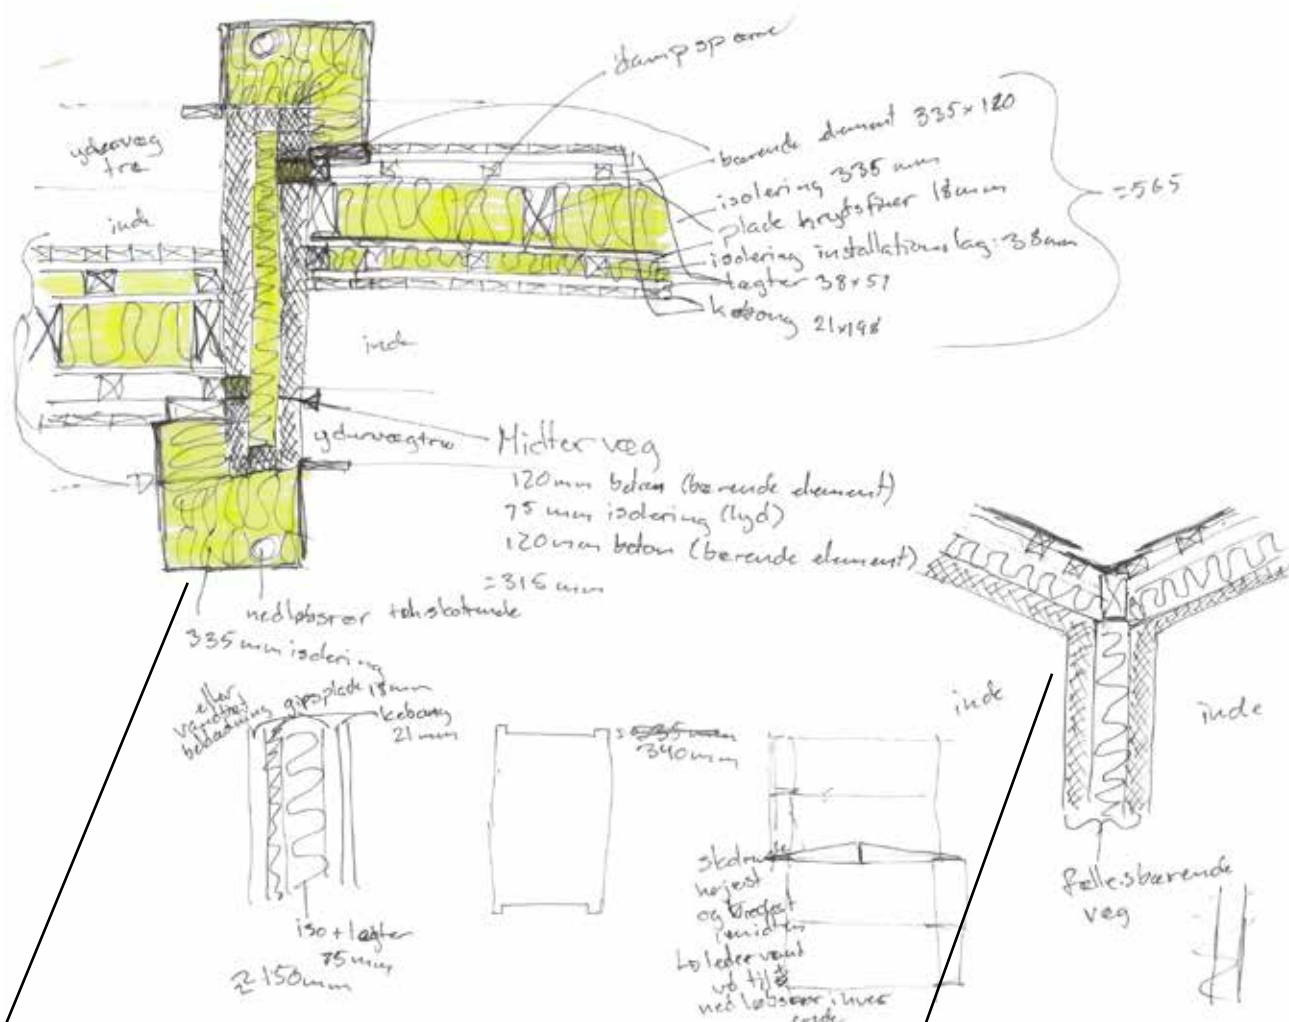 dampspærre
ydervæg
træ
inde
bærende element 335x120
isolering 335 mm
plade krydsfiner 18mm
isolering installationslag: 38mm
lægter 38x57
kebony 21x198
=565
inde
ydervægtræ
Midtervæg
120mm beton (bærende element)
75 mm isolering (lyd)
120mm beton (bærende element)
=315 mm
nedløbsrør
335mm isolering
eller
vandfast
beklædning
gipsplade 18mm
kebony
21mm
iso + lægter
≈150mm
340mm
inde
inde
højest
og bredest
i midten
nedløbsrør i hver
ende
fællesbærende
væg